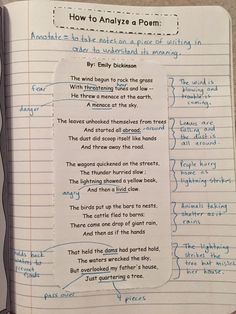 How to Analyze a Poem:
Annotate = to take notes on a piece of writing in
order to understand its meaning.
By: Emily Dickinson
The wind begun to rock the grass
With threatening tunes and low --
He threw a menace at the earth,
A menace at the sky.
fear
danger
The wind is
blowing and
trouble is
coming.
The leaves unhooked themselves from trees
And started all abroad, around
The dust did scoop itself like hands
And threw away the road.
Leaves are
falling and
the dust is
all around.
The wagons quickened on the streets,
The thunder hurried slow;
The lightning showed a yellow beak,
And then a livid claw.
angry
People hurry
home as
lightning strikes.
The birds put up the bars to nests,
The cattle fled to barns;
There came one drop of giant rain,
And then as if the hands
Animals taking
shelter as it
rains
That held the dams had parted hold,
The waters wrecked the sky,
But overlooked my father's house,
Just quartering a tree.
holds back
waters to
prevent
floods
pass over
4 pieces
The lightning
strikes the
tree but misses
her house.